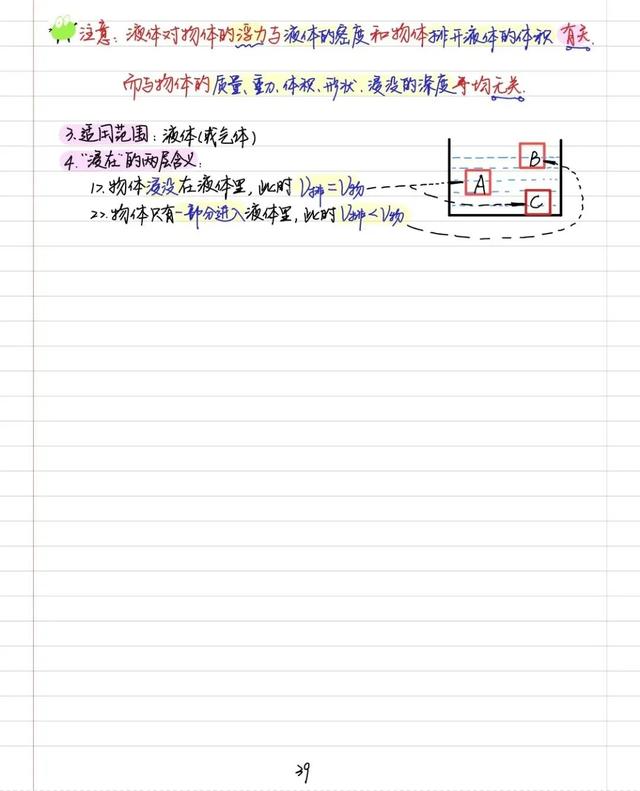 注意：液体对物体的浮力与液体的密度和物体排开液体的体积 有关.
而与物体的质量、重力、体积、形状、浸没的深度等均无关.
3.适用范围：液体(或气体)
4.“浸在”的两层含义：
1>.物体浸没在液体里，此时 V排=V物
2>.物体只有一部分进入液体里，此时 V排<V物
B
A
C
39